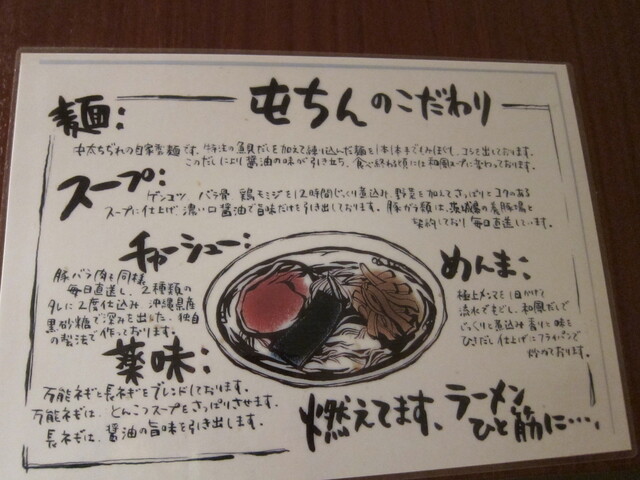 屯ちんのこだわり
麺:
中太ちぢれの自家製麺です。特注の魚貝だしを加えて練り込んだ麺を1本1本手でもみほぐし、コシを出しております。
このだしにより醤油の味が引き立ち、食べ終わる頃には和風スープに変わっております。
スープ:
ゲンコツ、バラ骨、鶏モミジを12時間じっくり煮込み、野菜を加えてさっぱりとコクのある
スープに仕上げ、濃い口醤油で旨味だけを引き出しております。豚ガラ類は、茨城県の養豚場と
契約しており毎日直送しています。
チャーシュー:
豚バラ肉も同様、
毎日直送し、2種類の
タレに2度仕込み 沖縄県産
黒砂糖で深みを出した、独自
の製法で作っております。
めんま:
極上メンマを1日かけて
流水でもどし、和風だしで
じっくりと煮込み香りと味を
ひきだし仕上げにフライパンで
炒めております。
薬味:
万能ネギと長ネギをブレンドしております。
万能ネギは、とんこつスープをさっぱりさせます。
長ネギは、醤油の旨味を引き出します。
燃えてます、ラーメン
ひと筋に…。